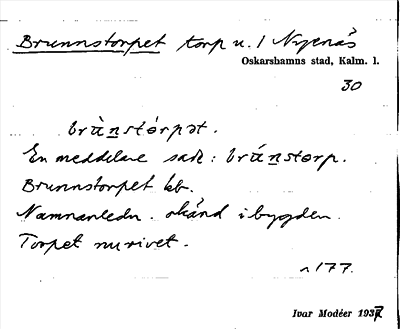 Brunnstorpet torp u. 1 Nyenäs
Oskarshamns stad, Kalm. l.
30
brùnstórpət.
En meddelare sade: brúnstorp.
Brunnstorpet kb.
Namnanledn. okänd i bygden.
Torpet nu rivet.
177.
Ivar Modéer 1937